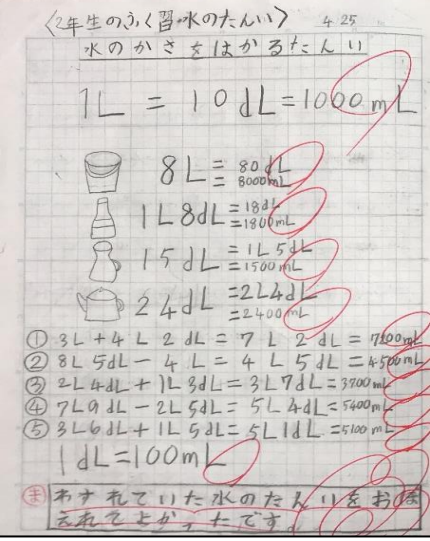 〈2年生のふく習・水のたんい〉 4 25
水のかさをはかるたんい
1L = 10dL = 1000mL
8L = 80dL
= 8000mL
1L8dL = 18dL
= 1800mL
15dL = 1L5dL
= 1500mL
24dL = 2L4dL
= 2400mL
① 3L + 4L2dL = 7L2dL = 7200mL
② 8L5dL - 4L = 4L5dL = 4500mL
③ 2L4dL + 1L3dL = 3L7dL = 3700mL
④ 7L9dL - 2L5dL = 5L4dL = 5400mL
⑤ 3L6dL + 1L5dL = 5L1dL = 5100mL
1dL = 100mL
ま わすれていた水のたんいをおぼ
えれてよかったです。